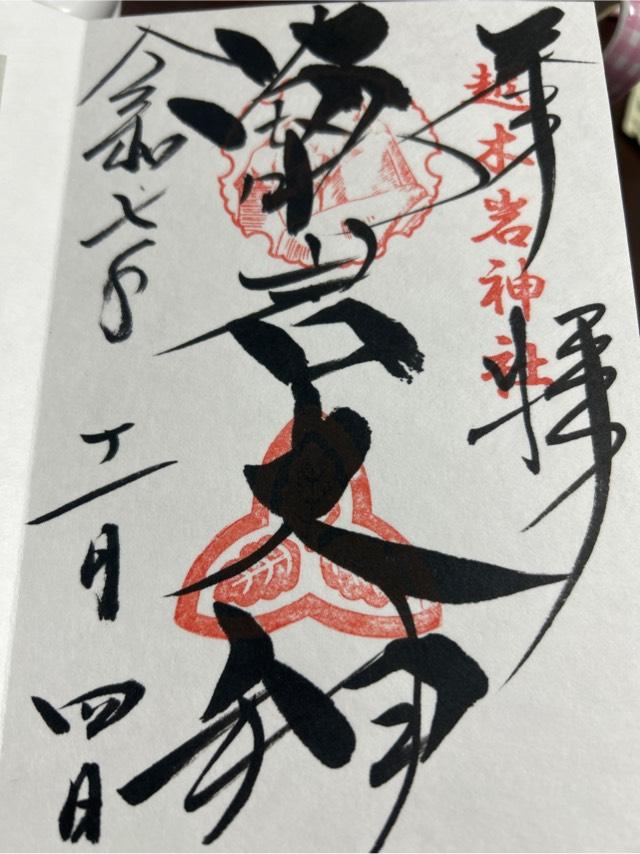 奉拝
越木岩神社
甑岩大神
令和七年
十一月
四日